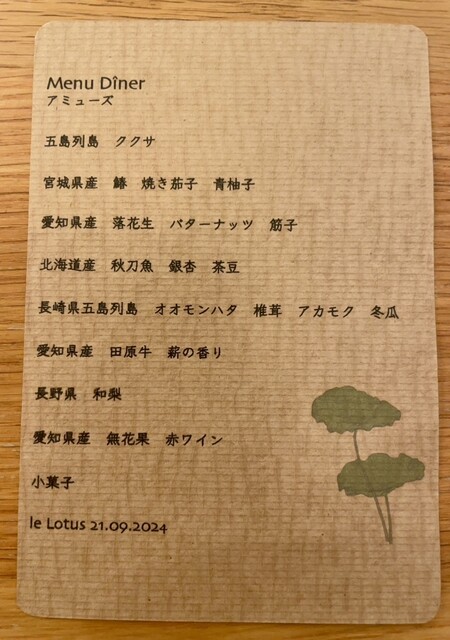 Menu Dîner
アミューズ
五島列島　ククサ
宮城県産　鰆　焼き茄子　青柚子
愛知県産　落花生　バターナッツ　筋子
北海道産　秋刀魚　銀杏　茶豆
長崎県五島列島　オオモンハタ　椎茸　アカモク　冬瓜
愛知県産　田原牛　薪の香り
長野県　和梨
愛知県産　無花果　赤ワイン
小菓子
le Lotus 21.09.2024